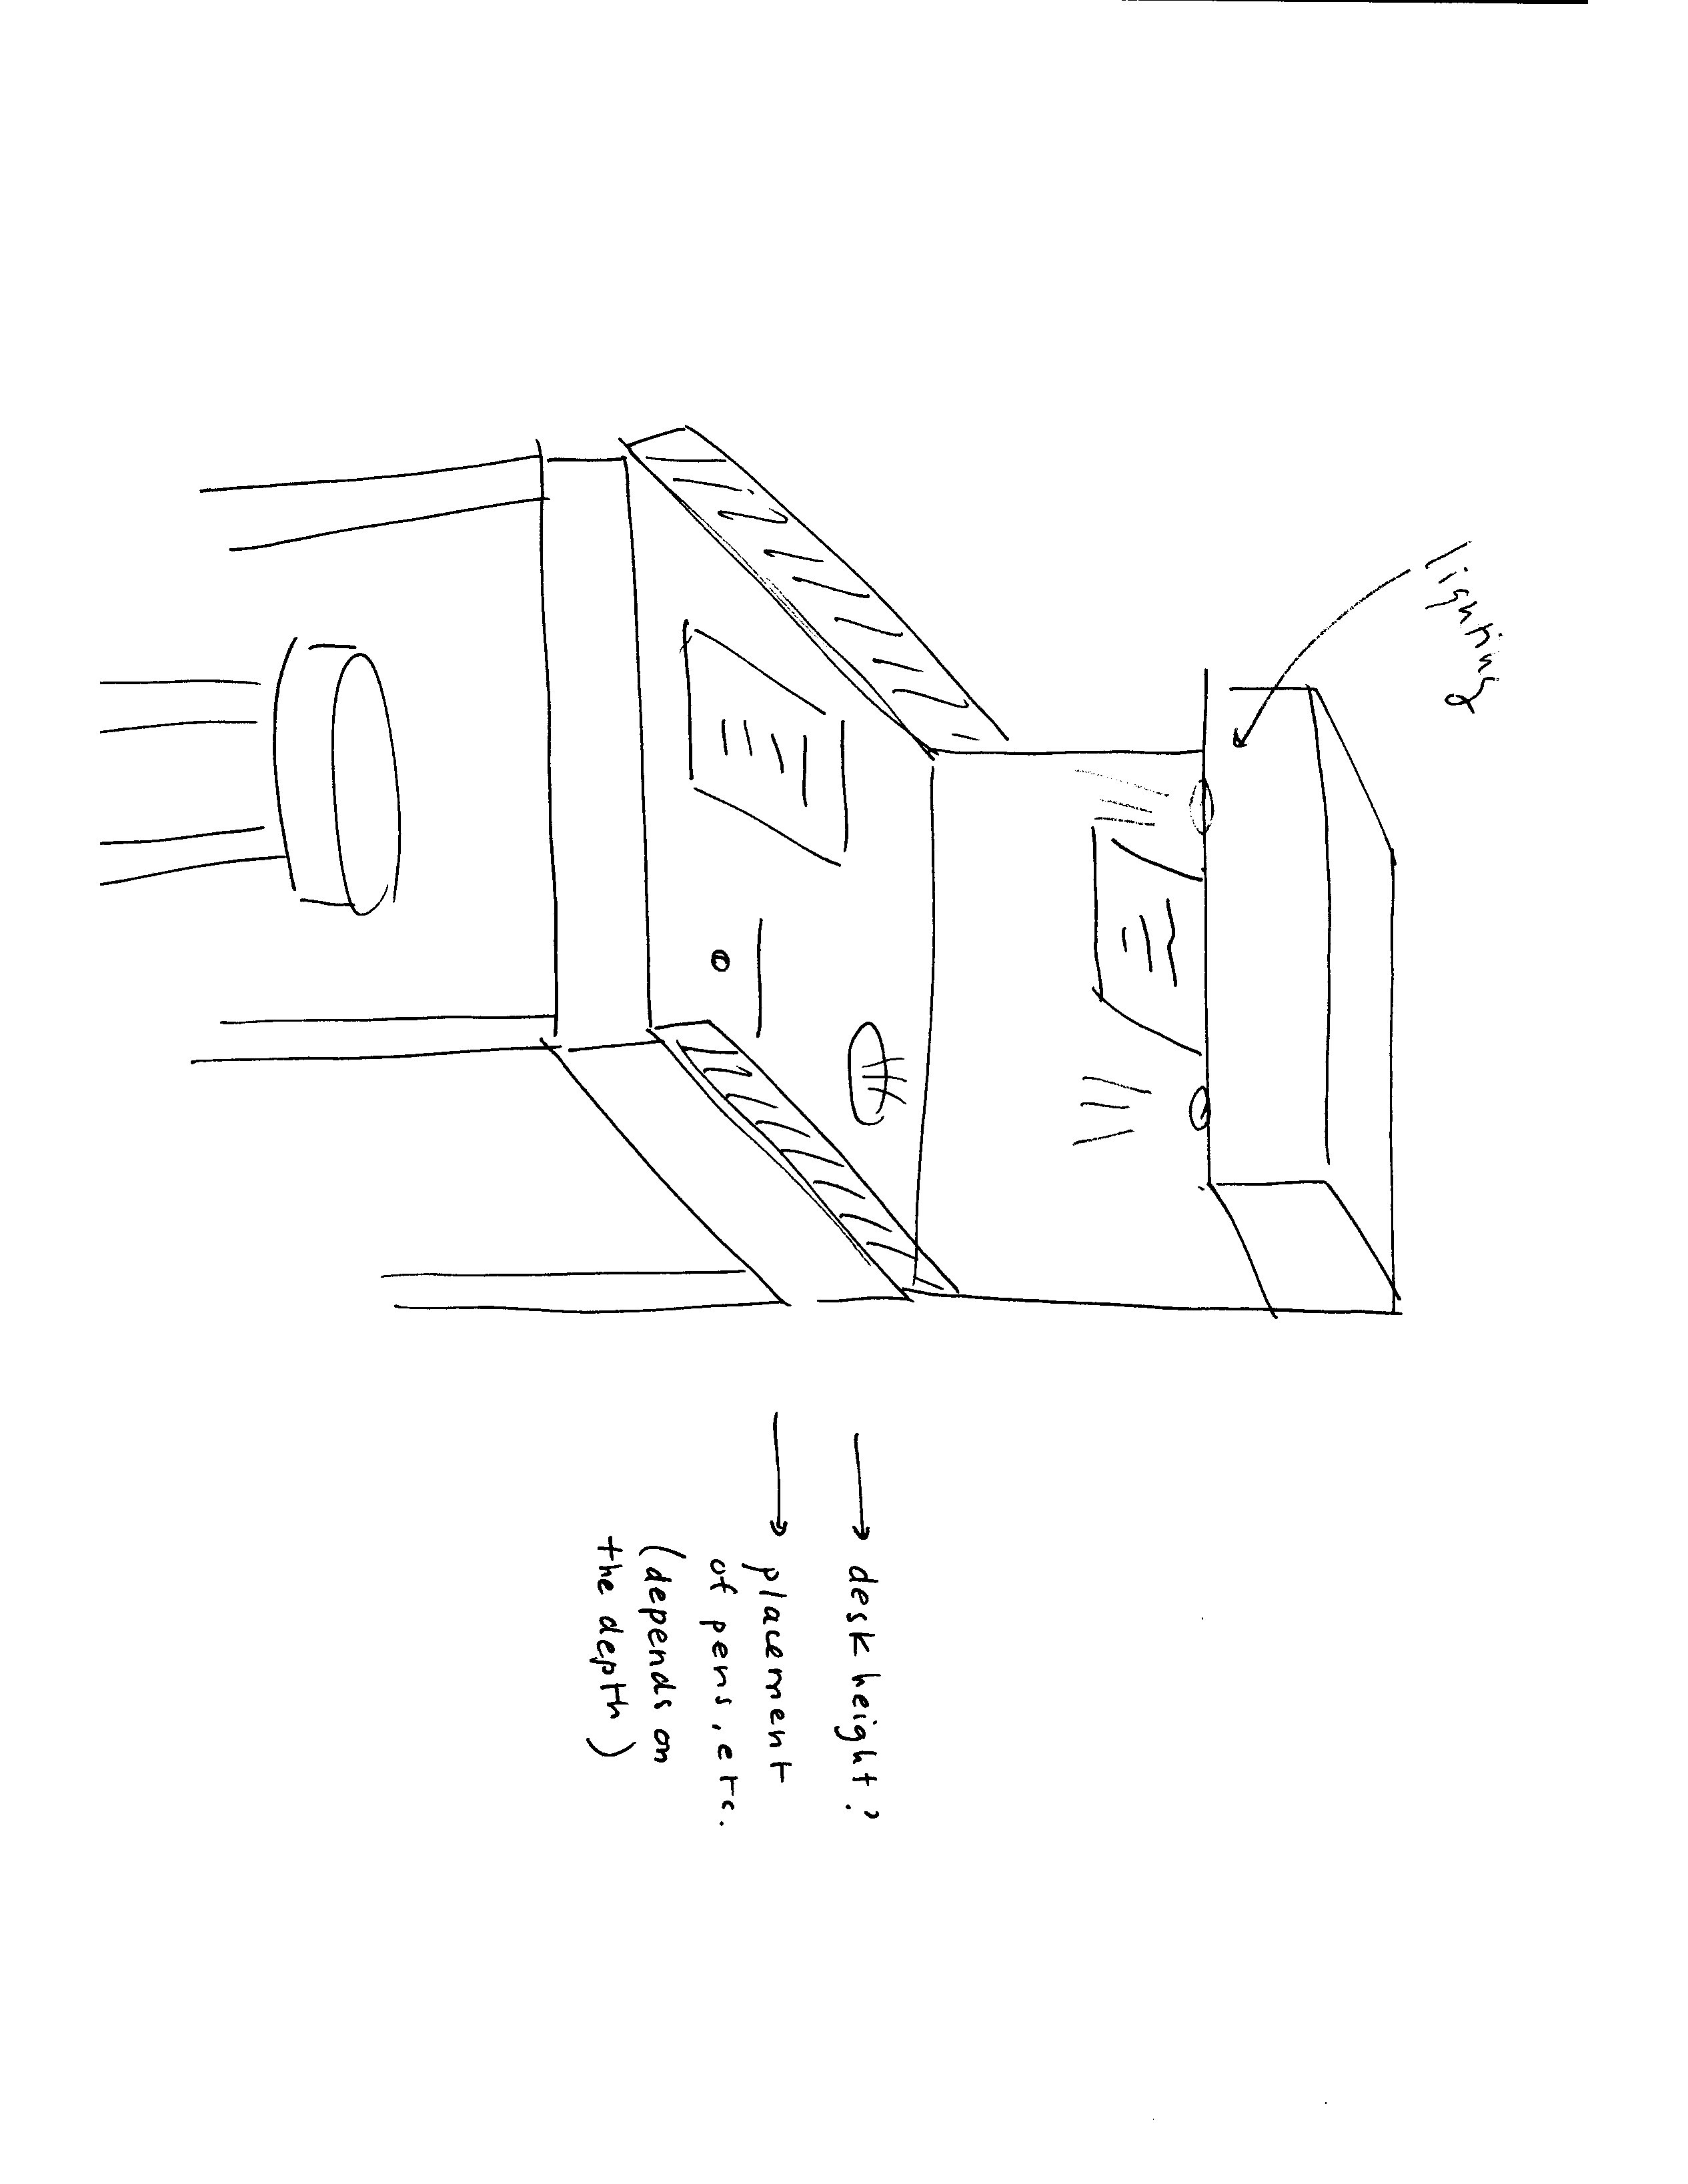 lighting
→ desk height?
→ placement
of pens, etc.
(depends on
the depth)